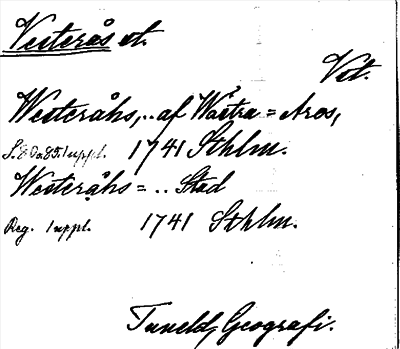 Westerås et.
Vst.
Westeråhs, .. af Wästra = Aros,
1 uppl. 1741 Sthlm.
Westeråhs = .. Stad
Reg. 1 uppl. 1741 Sthlm.
Tuneld, Geografi.